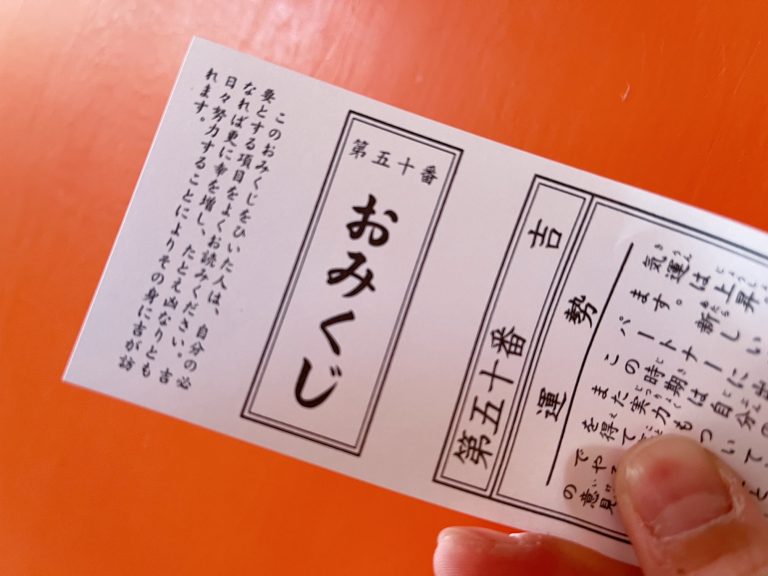 このおみくじをひいた人は、自分の必
要とする項目をよくお読みください。吉
なれば更に幸を増し、たとえ凶なりとも
日々努力することによりその身に吉が訪
れます。
第五十番
おみくじ
第五十番 吉
運勢
気運は上昇
ます。新しい
パートナーに
この時期は自分の
また実力もつい
を得て
でや
の意見